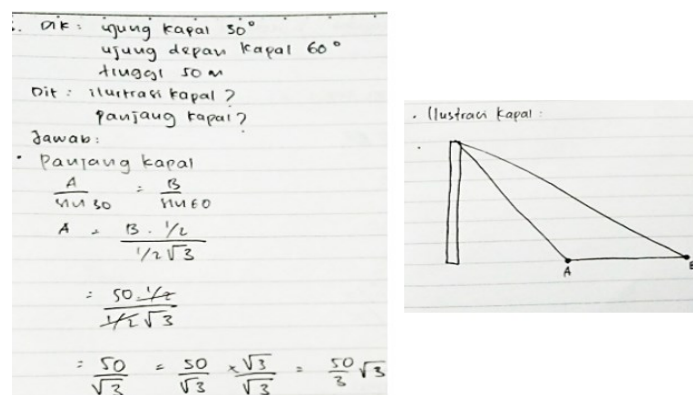 Dik : ujung kapal 30°
ujung depan kapal 60°
tinggi 50 m
Dit : ilustrasi kapal ?
panjang kapal ?
Jawab :
• Panjang kapal
A/sin 30 = B/sin 60
A = B . 1/2 / 1/2√3
= 50 . 1/2 / 1/2 √3
= 50/√3 = 50/√3 × √3/√3 = 50/3 √3
• Ilustrasi kapal :
A
B